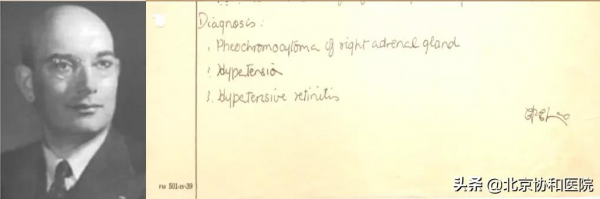 Diagnosis:
1. Pheochromocytoma of right adrenal gland
2. Hypertension
3. Hypertensive retinitis
FM 501-m-39
头条 @北京协和医院